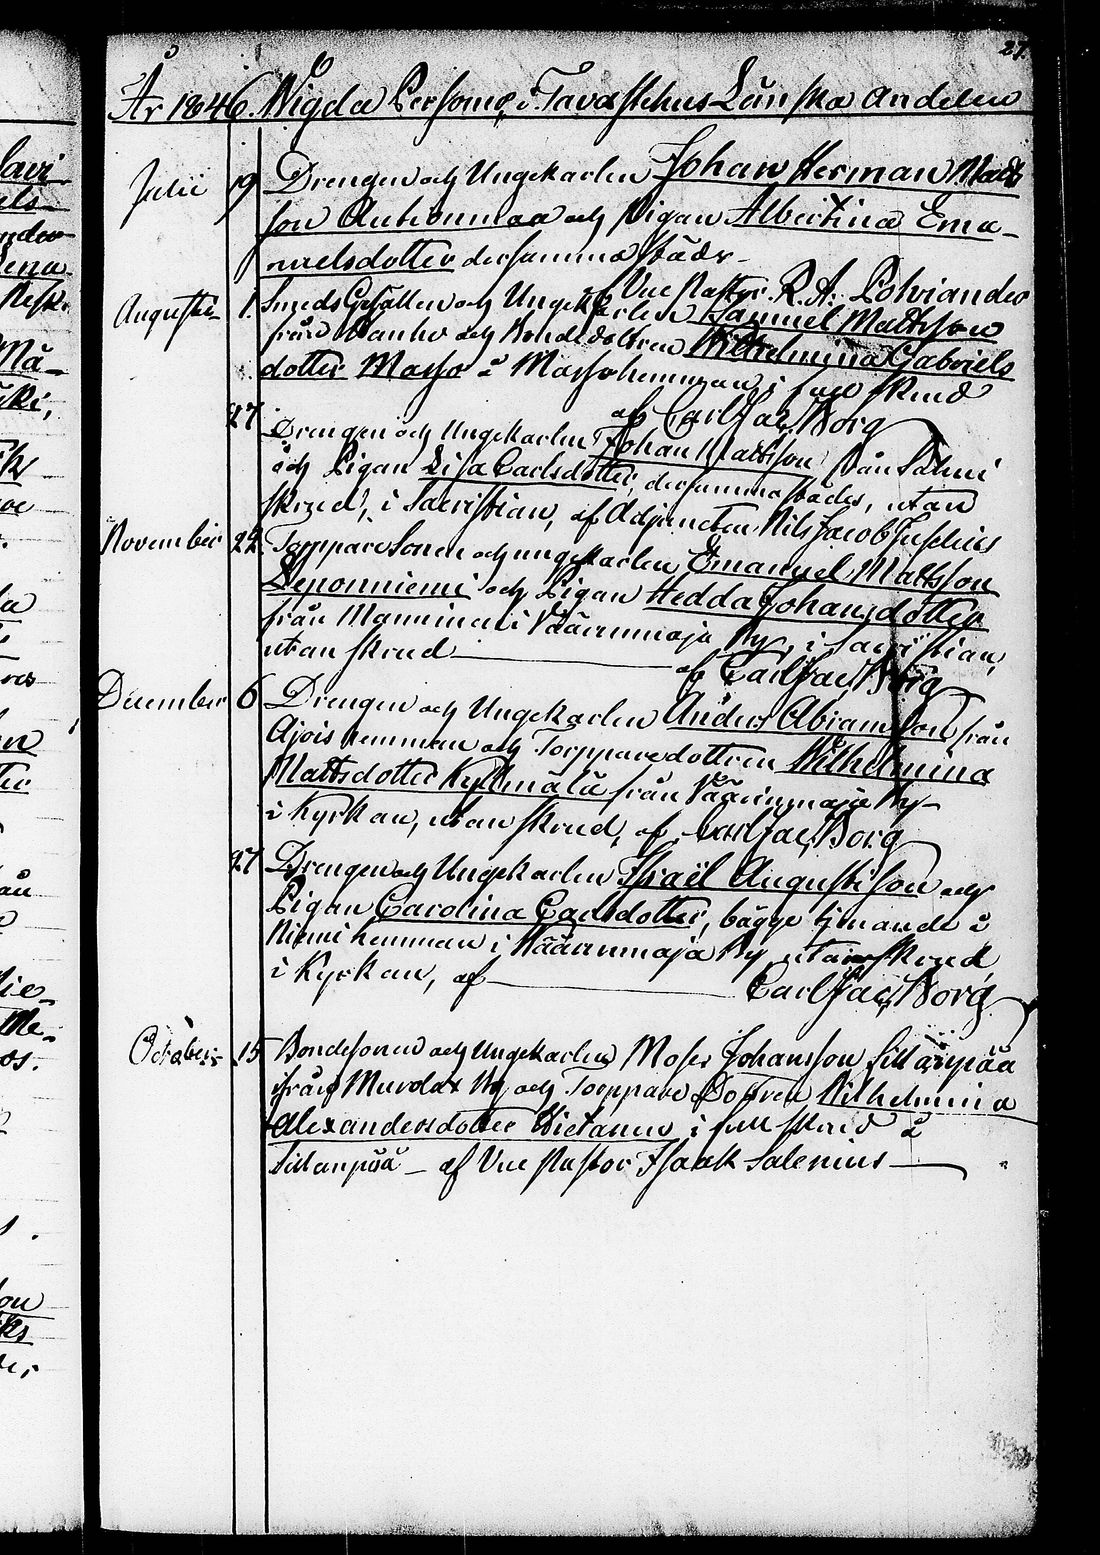 27.
År 1846. Wigda Personer i Tavastehus Länska andelen
Julii 19 Drengen och Ungekarlen Johan Herman Matts
son och Pigan Albertina Ema-
nuelsdotter dersammastäds-
af Vice Pastor R. A. Polviander
Augusti 1. Smeds Gesällen och Ungekarlen Samuel Mattsson
från och Bondedottren Wilhelmina Gabriels
dotter Masso å Massohemman i full skrud
af Carl Jac. Borg
27 Drengen och Ungekarlen Johan Mattsson från Salmi
och Pigan Lisa Carlsdotter, dersammastädes, utan
skrud, i Sacristian, af Adjuncten Nils Jacob
November 22. Torppare Sonen och ungekarlen Emanuel Mattsson
Leponniemi och Pigan Hedda Johansdotter
från i Väärinmaja By, i Sacristian,
utan skrud
af Carl Jac. Borg
December 6 Drengen och Ungekarlen Anders Abramsson från
Ajois hemman och Torppare dottren Wilhelmina
Mattsdotter Kyllmälä från Väärinmaja By-
i Kyrkan, utan skrud, af Carl Jac. Borg
27 Drengen och Ungekarlen Israël Augustisson och
Pigan Carolina Carlsdotter, bägge tjenande å
Niemi hemman i Väärinmaja By, utan skrud
i Kyrkan, af Carl Jac. Borg
October 15 Bondesonen och Ungekarlen Moses Johansson Sillanpää
från Murola By och Torppare Dottren Wilhelmina
Alexandersdotter i full skrud å
Sillanpää - af Vice Pastor Isaak Salenius